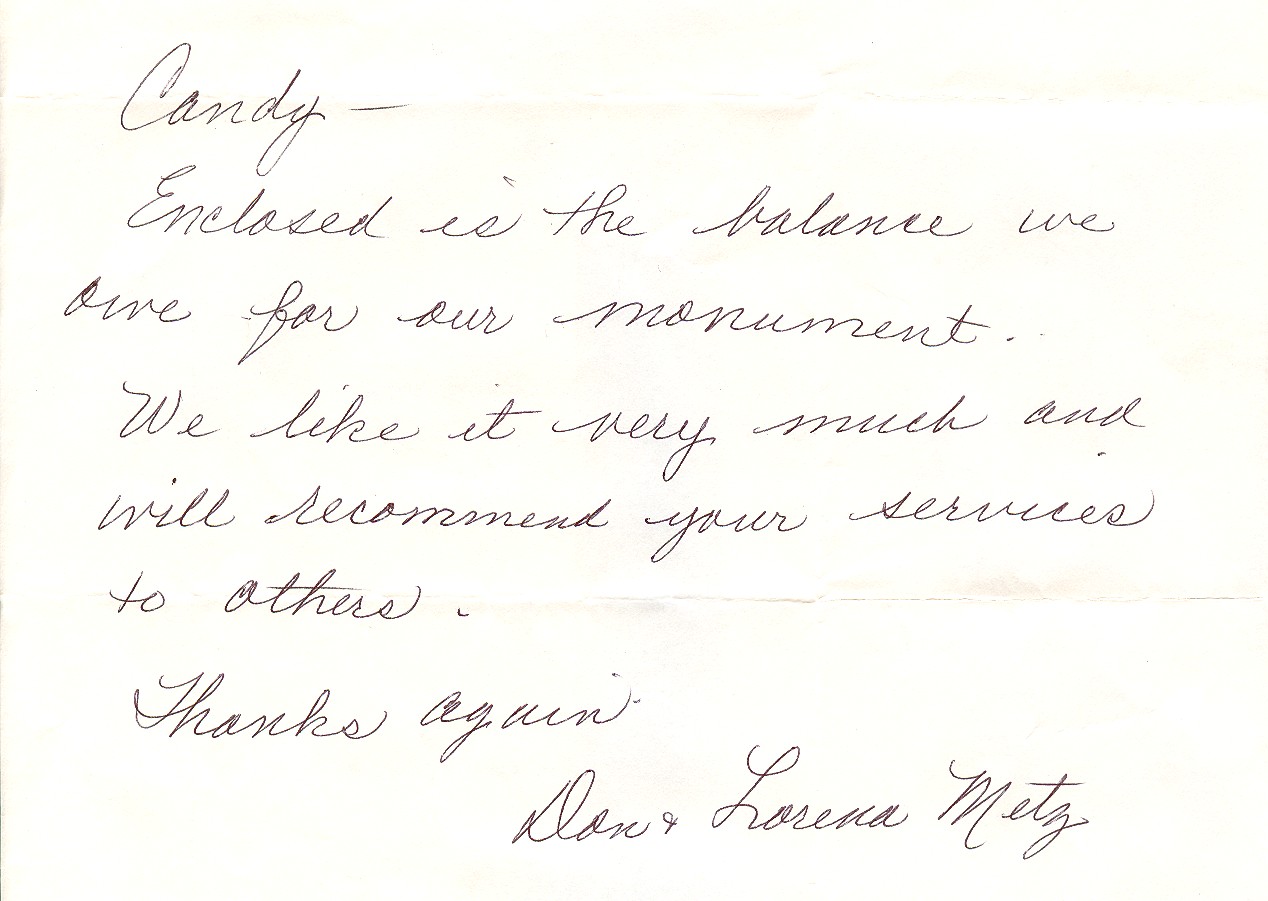 Candy —
Enclosed is the balance we
owe for our monument.
We like it very much and
will recommend your services
to others.
Thanks again
Don & Lorena Metz